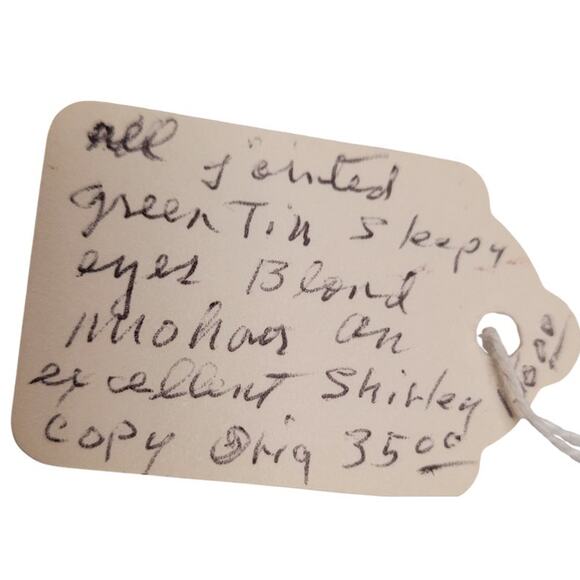 all jointed
green Tin sleepy
eyes Blond
mohar an
excellent Shirley
copy Orig 3500